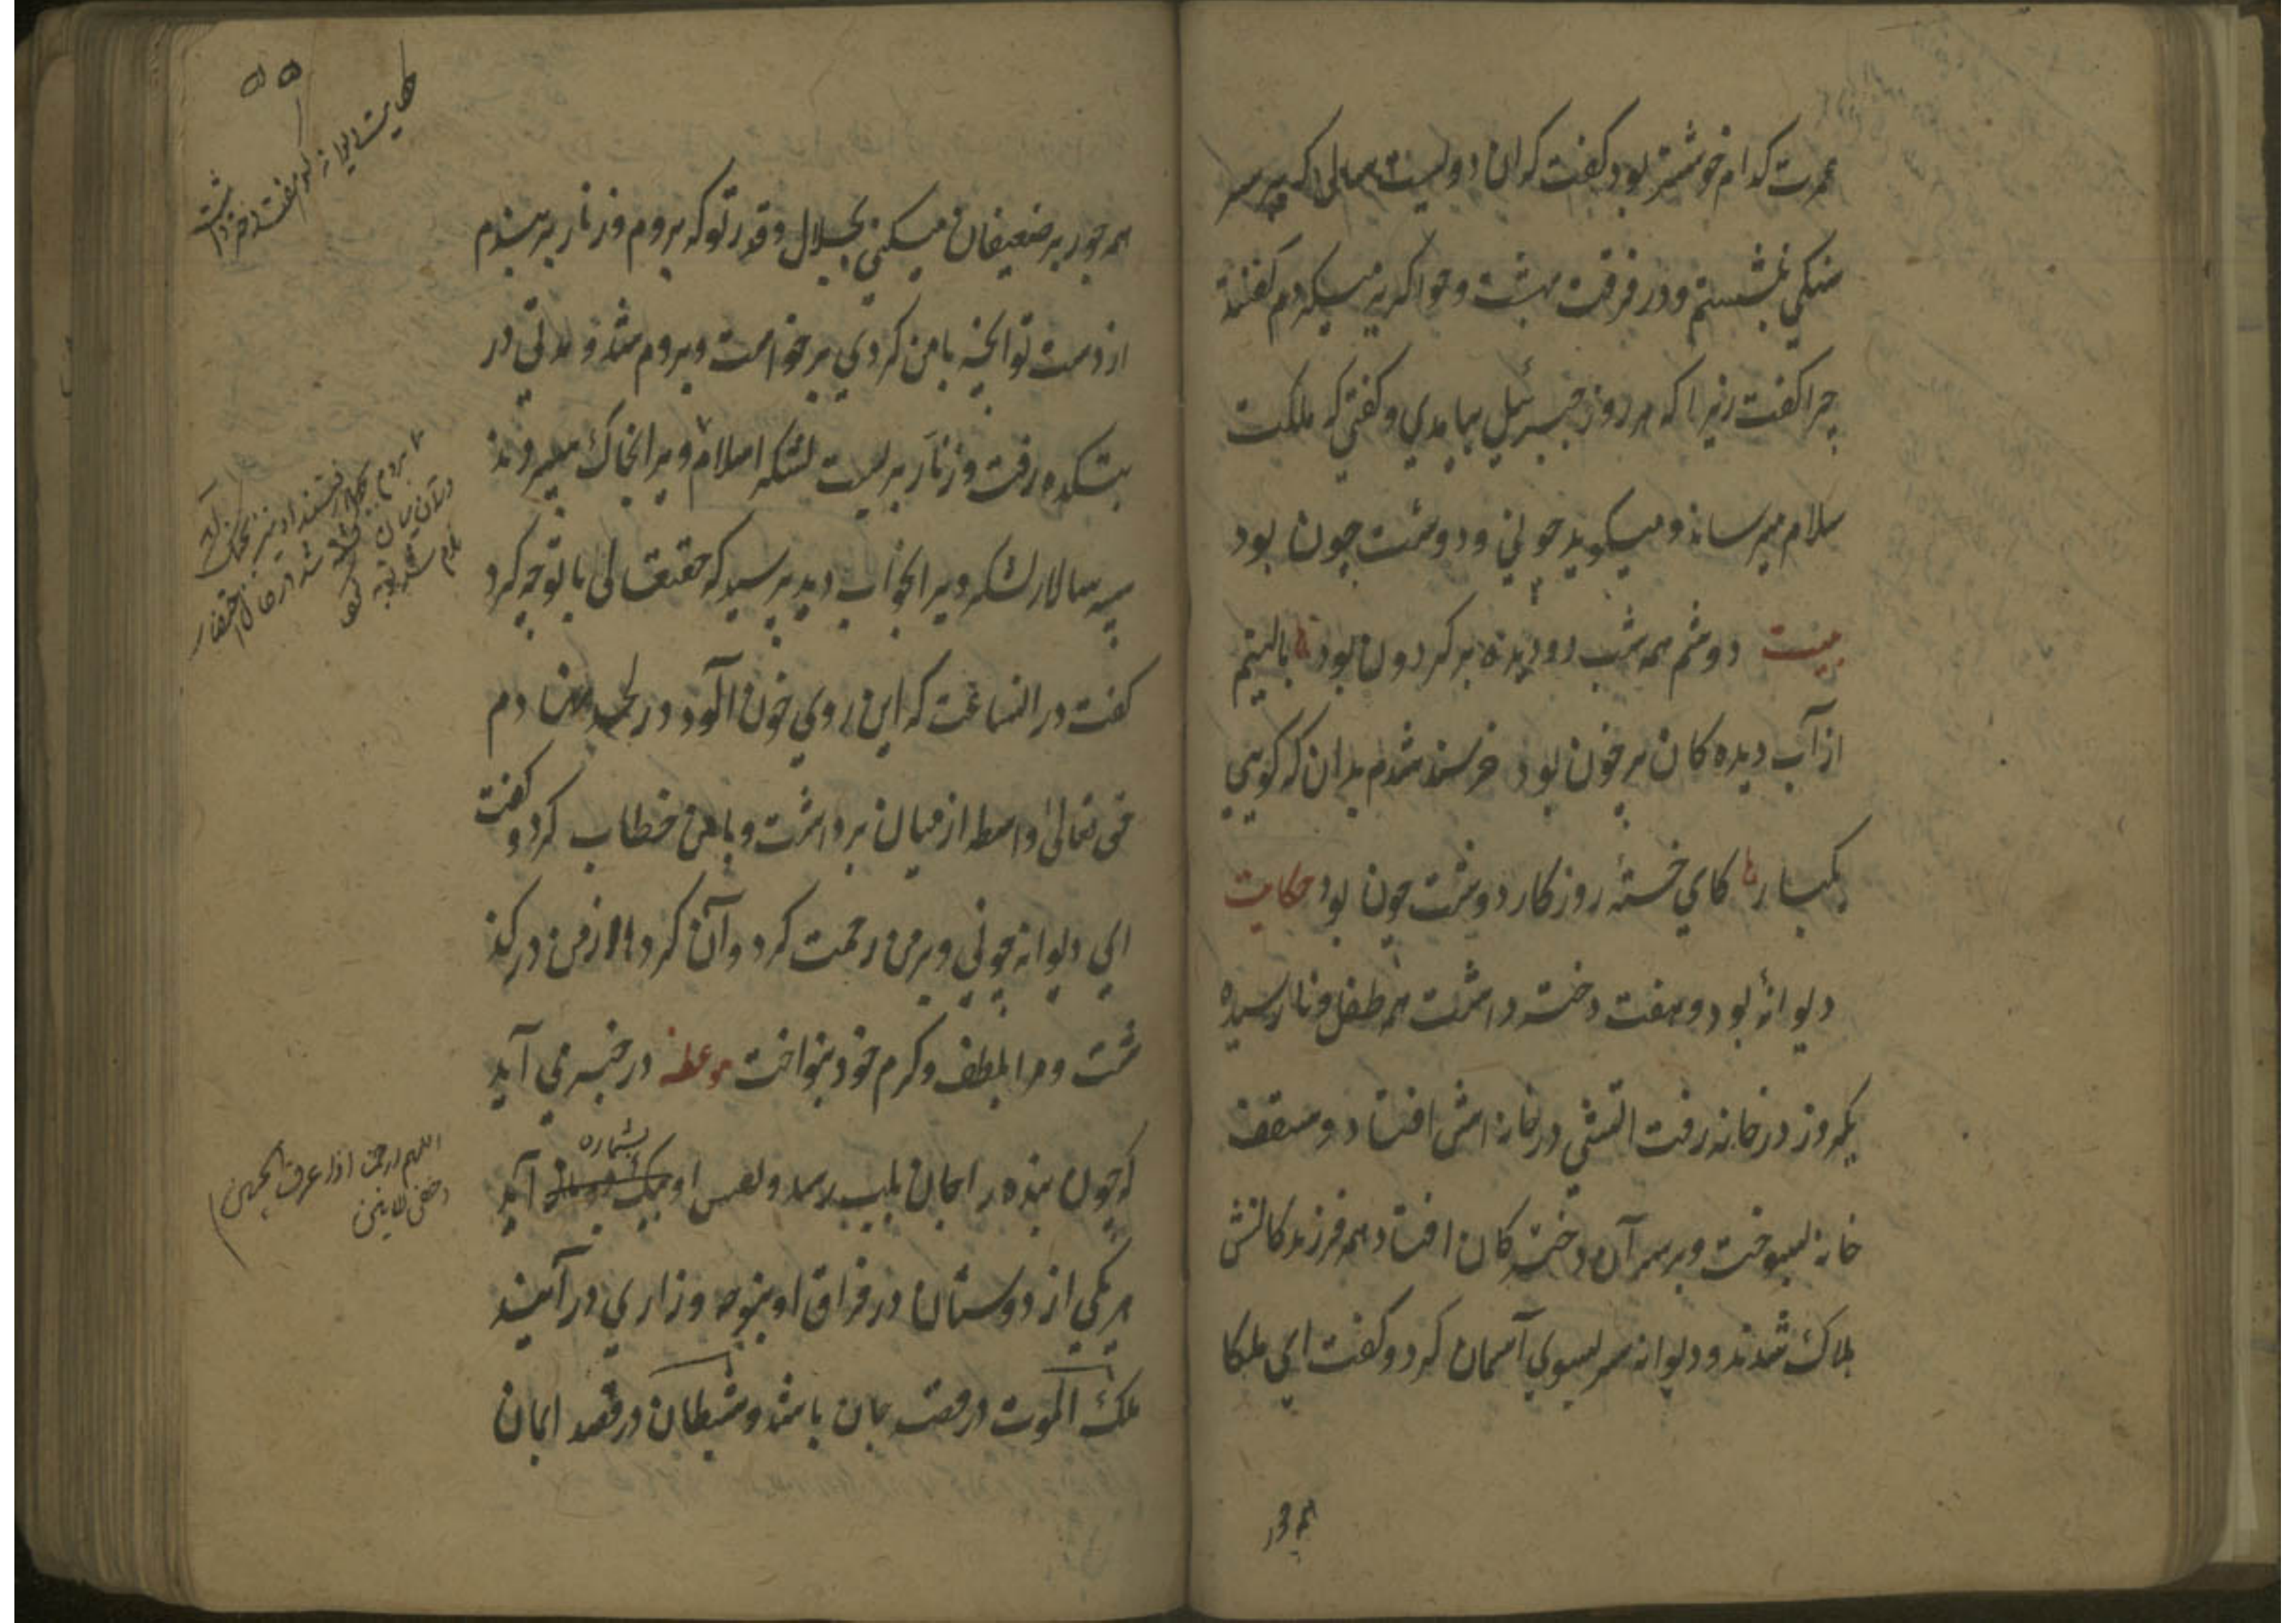 عمرت کدام خوشتر بود کفت که ان دولیست سالی که بر سر
سنکی نشستم و در فرقت بهشت و حوا کریه میکردم کفتند
چرا کفت زیرا که هر روز جبرئیل بیامدی و کفتی که ملکت
سلام میرساند و میکوید چونی و دوشت چون بود
بیت دوشم همه شب رو دیده بر کردون بود بالینم
از آب دیده کان پر خون بود خرسند شدم بدان که کویی
یکبار کای خستهٔ روزکار دوشت چون بود حکایت
دیوانهٔ بود و هفت دختر داشت همه طفل و نارسیده
یکروز در خانه رفت اتشی در خانه اش افتاد و سقف
خانه بسوخت و بر سر آن دخترکان افتاد همه فرزندکانش
هلاک شدند و دیوانه سر بسوی آسمان کرد و کفت ای ملکا
همه جور
۵۵
حکایت دیوانه که هفت دختر داشت
همه جور بر ضعیفان میکنی بجلال و قدر تو که بروم و زنار بر بندم
از دست تو انچه با من کردی برخواست و بروم شد و مدتی در
بتکده رفت و زنار بر بست لشکر اسلام ویرا بخاک سپردند
سپه سالار لشکر ویرا بخواب دید پرسید که حقتعالی با تو چه کرد
کفت در انساعت که این روی خون آلود در لحد نهادم
حق تعالی واسطه از میان برداشت و با من خطاب کرد و کفت
ای دیوانه چونی و بر من رحمت کرد و آن کرد ها از من در کذ
شت و مرا بلطف و کرم خود بنواخت موعظه در خبر می آید
که چون بنده را جان بلب رسد و نفس او بشماره آید
هر یکی از دوستان در فراق او بنوحه و زاری در آیند
ملک الموت در قصد جان باشد و شیطان در قصد ایمان
اللهم ارحمنا اذا عرق الجبین